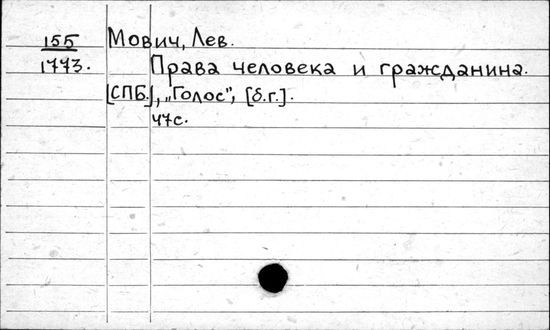 155 Мович, Лев.
1773. Права человека и гражданина.
[СПБ.], „Голос", [б.г.].
47с.